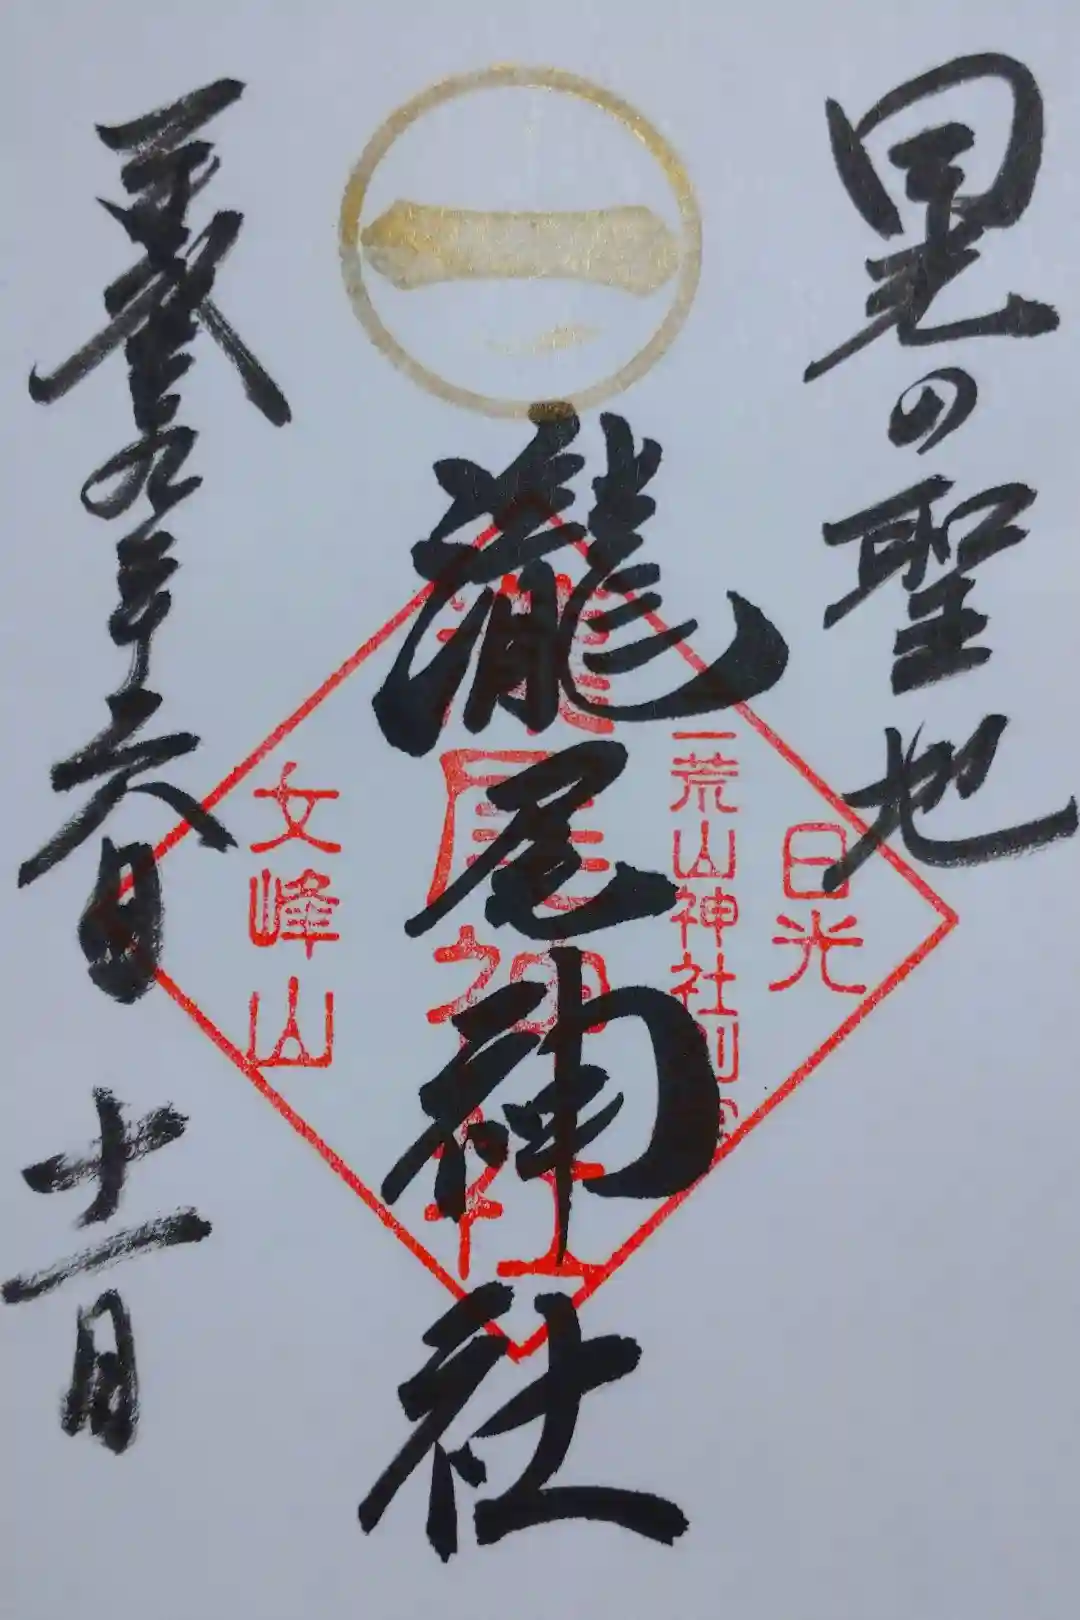 日光の聖地
一
瀧尾神社
平成二十九年六月 十一日
日光
二荒山神社別宮
瀧尾神社
女峰山